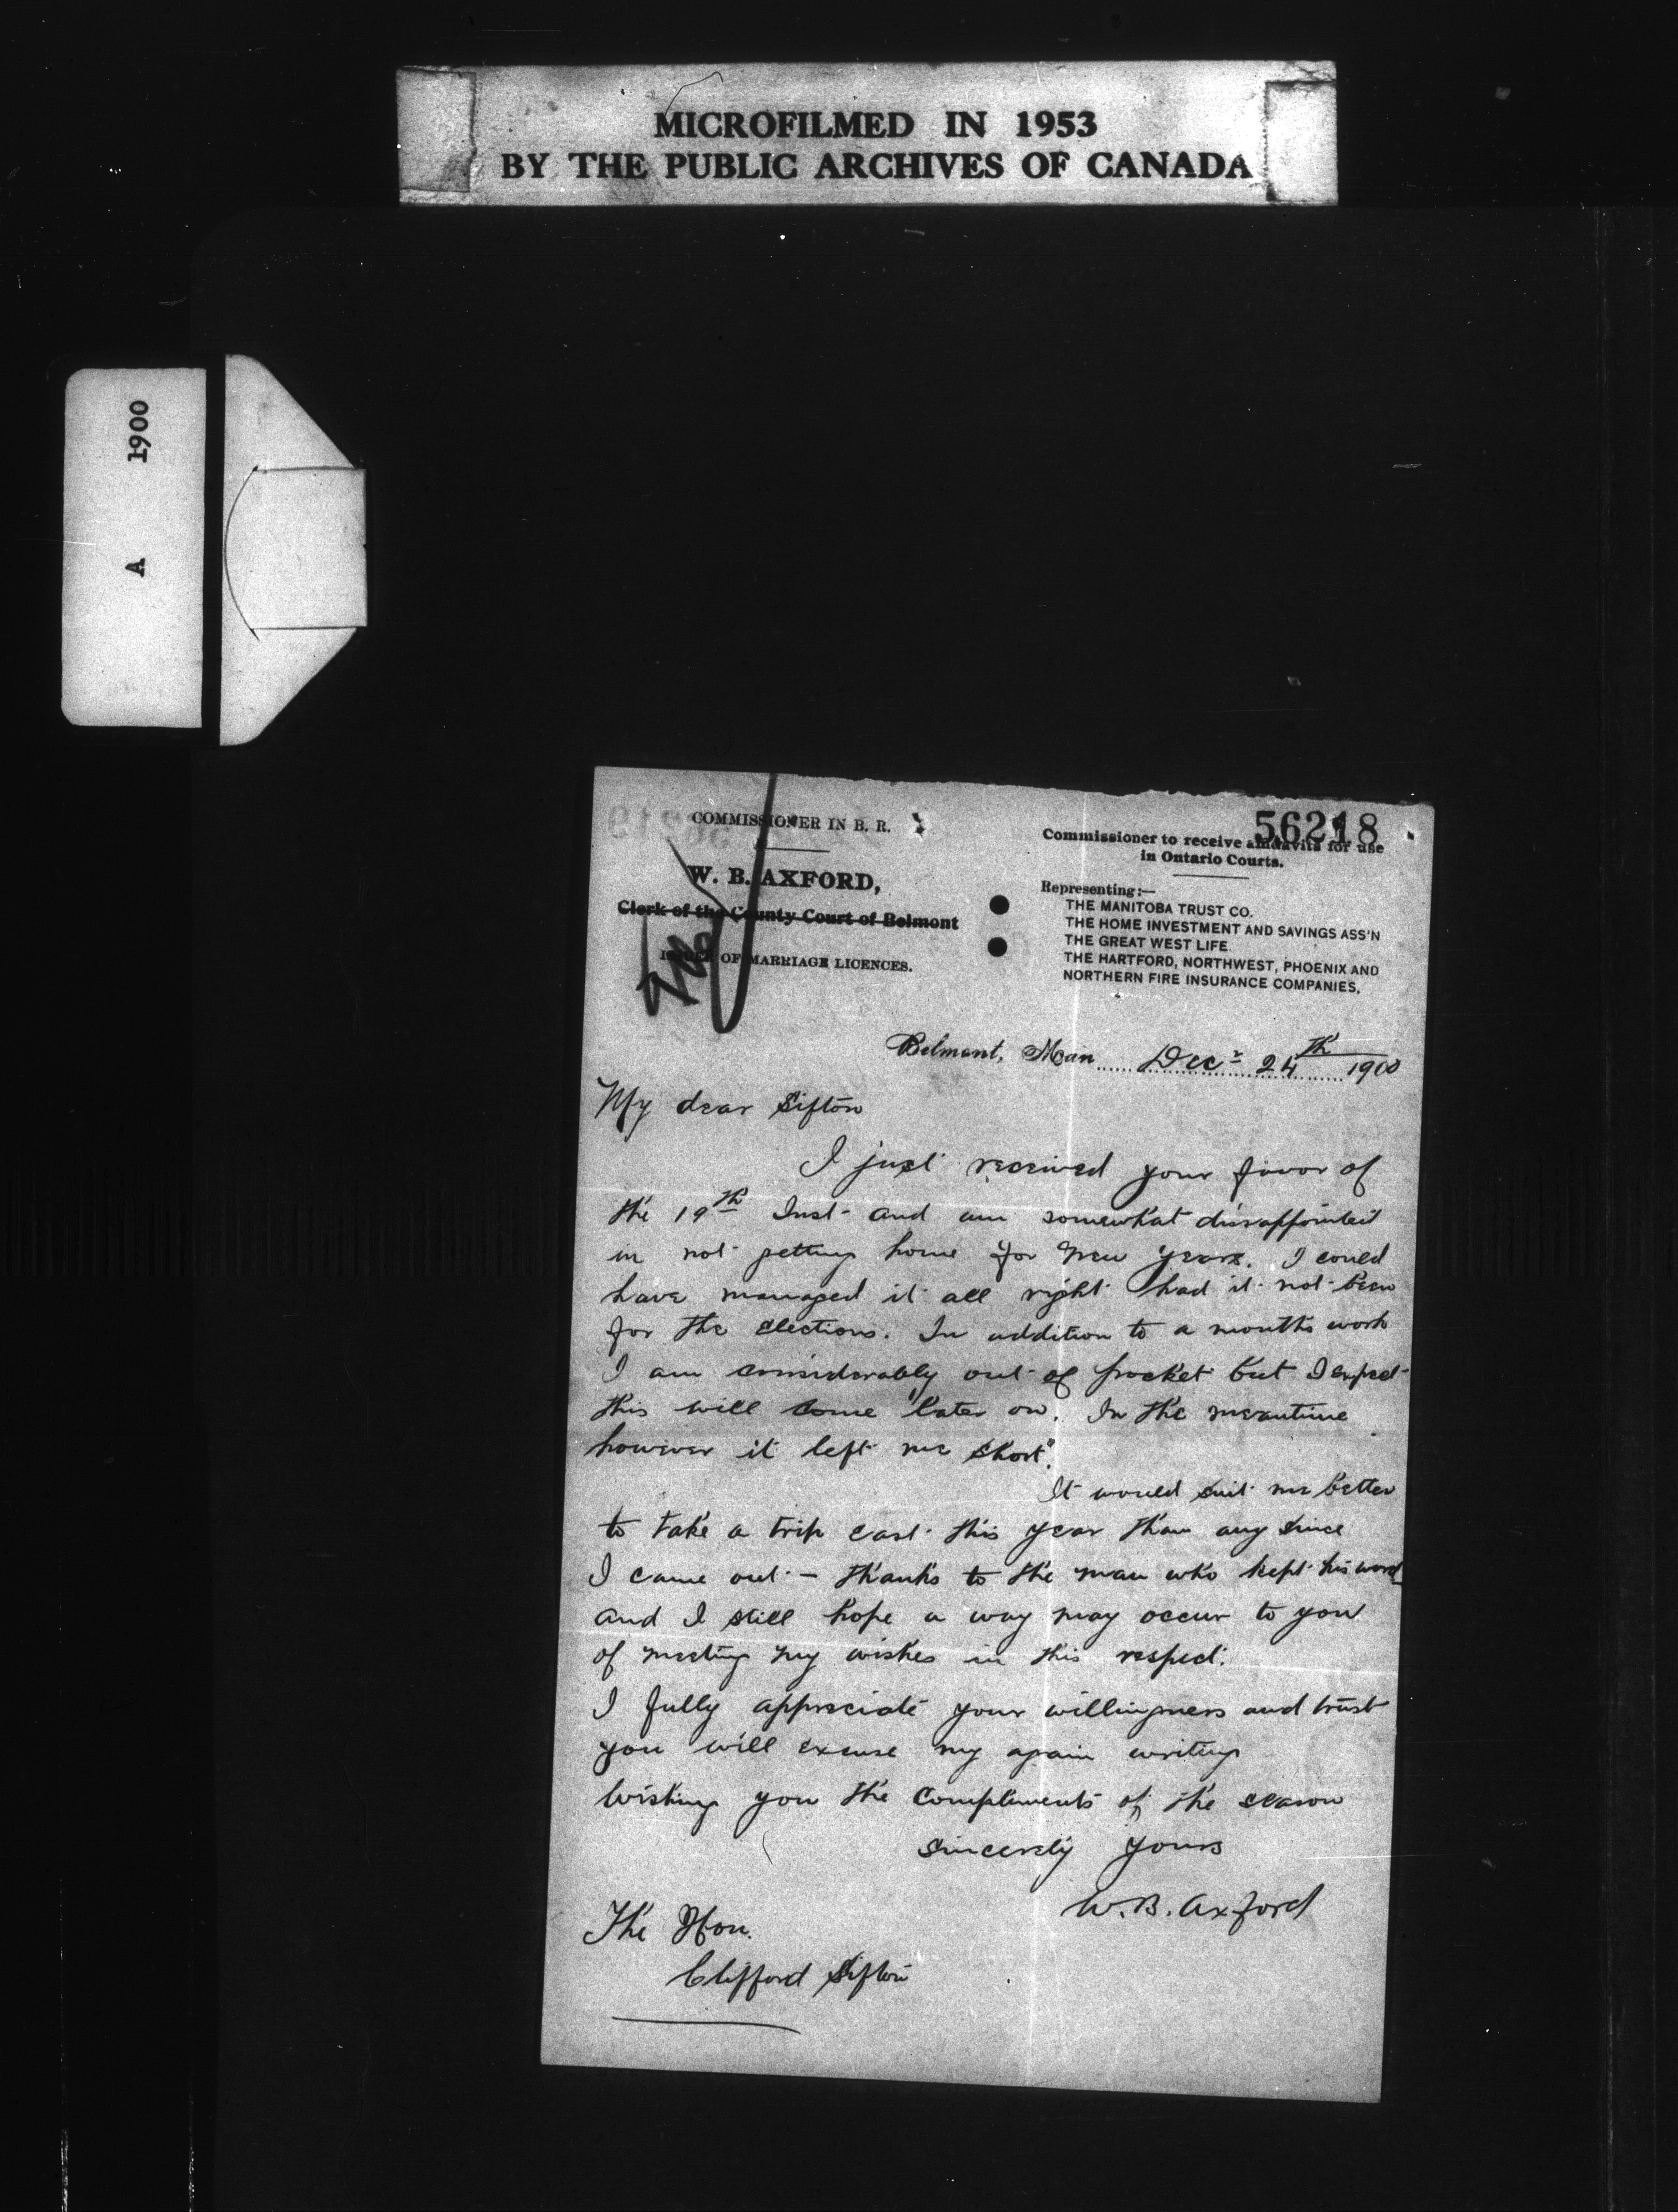 MICROFILMED IN 1953
BY THE PUBLIC ARCHIVES OF CANADA
A 1900
56218
COMMISSIONER IN B. R.
W. B. AXFORD,
Clerk of the County Court of Belmont
ISSUER OF MARRIAGE LICENCES.
Commissioner to receive affidavits for use
in Ontario Courts.
Representing:—
THE MANITOBA TRUST CO.
THE HOME INVESTMENT AND SAVINGS ASS'N
THE GREAT WEST LIFE
THE HARTFORD, NORTHWEST, PHOENIX AND
NORTHERN FIRE INSURANCE COMPANIES.
Belmont, Man. Decr 24th 1900
My dear Sifton
I just received your favor of
the 19th Inst- and am somewhat dissappointed
in not getting home for New Years. I could
have managed it all right had it not been
for the elections. In addition to a months work
I am considerably out of pocket but I expect
this will come "later on. In the meantime
however it left me short".
It would suit me better
to take a trip east this year than any since
I came out - thanks to the man who kept his word
and I still hope a way may occur to you
of meeting my wishes in this respect.
I fully appreciate your willingness and trust
you will excuse my again writing
Wishing you the Compliments of the season
Sincerely Yours
W. B. Axford
The Hon.
Clifford Sifton